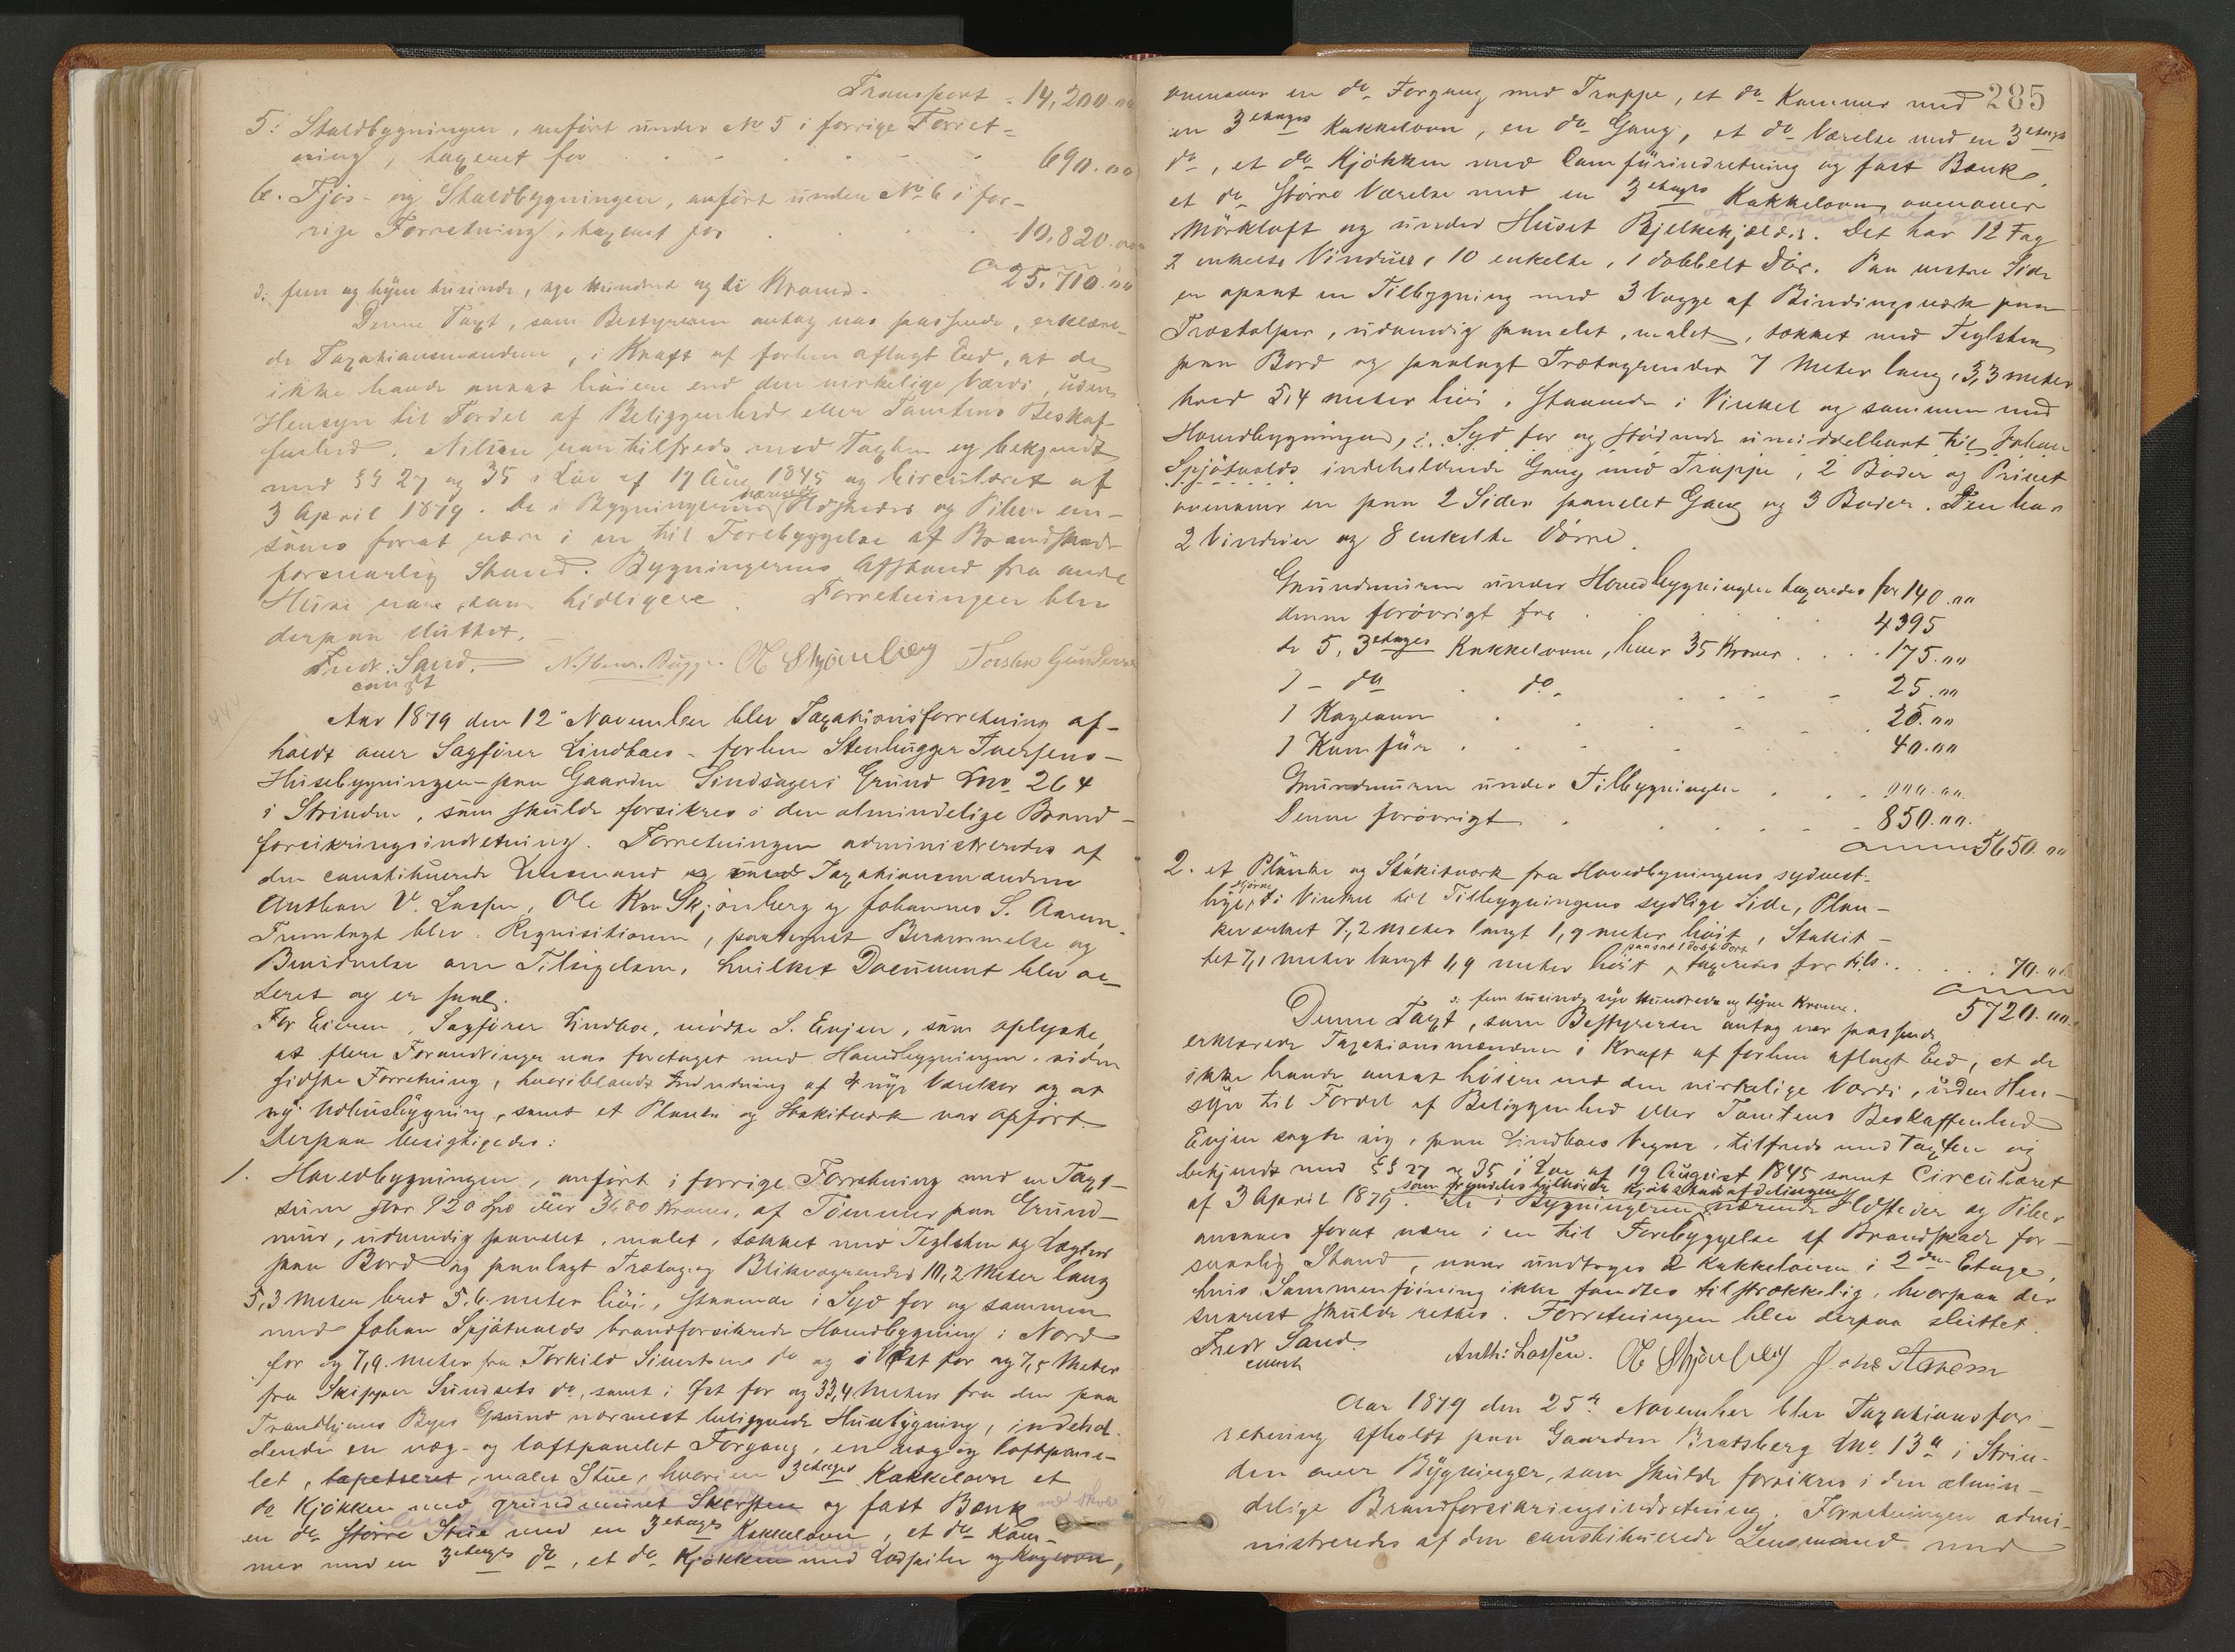 Transport = 14,200.00
5: Staldbygningen, anført under No 5 i forrige Forret=
ning, taxeret for 690.00
6. Fjøs- og Staldbygningen, anført under No 6 i for-
rige Forretning, taxeret for 10,820.00
25,710.00
ɔ: fem og tyve tusinde, syv Hundrede og ti Kroner.
Denne Taxt, som Bestyreren antog var passende, erklære-
de Taxationsmændene, i Kraft af forhen aflagt Eed, at de
ikke havde ansat høiere end den virkelige Værdi, uden
Hensyn til Fordel af Beliggenhed eller Tomtens Beskaf-
fenhed. Nilsen var tilfreds med Taxten og bekjendt
med §§ 27 og 35 i Lov af 19 Aug 1845 og Circulæret af
3 April 1879. De i Bygningerne værende Ildsteder og Piber an-
saaes forat være i en til Forebyggelse af Brandskade
forsvarlig Stand. Bygningernes Afstand fra andre
Huse var som tidligere. Forretningen blev
derpaa sluttet.
Fredr. Sand. Bügge. O Skjønberg Torsten Gunderse
const
Aar 1879 den 12 November blev Taxationsforretning af-
holdt over Sagfører Lindboes - forhen Stenhugger Iversens -
Husebygninger paa Gaarden Lindsagers Grund Lno 264
i Strinden, som skulde forsikres i den almindelige Brand-
forsikringsindretning. Forretningen administreredes af
den constituerede Lensmand og Taxationsmændene
Anthon V. Lassen, Ole Kr. Skjønberg og Johannes S. Aarem.
Fremlagt blev Requisitionen, paategnet Berammelse og
Bevidnelse om Tilsigelsen, hvilket Document blev oc-
teret og er saal.
For Eieren, Sagfører Lindboe, mødte S. Evjen, som oplyste,
at flere Forandringer var foretaget med Hovedbygningen siden
sidste Forretning, hvoriblandt Indredning af 4 nye Værelser og at
ny Udhusbygning, samt et Planke og Stakitværk var opført.
Derpaa besigtigedes:
1. Hovedbygningen, anført i forrige Forretning med en Taxt-
sum stor 920 Spd eller 3680 Kroner, af Tømmer paa Grund-
mur, udvendig panelet, malet, tækket med Teglsten og Lægter
paa Bord og paalagt Trætag og Blikvagrender 10,2 Meter lang
5,3 Meter bred 5,6 meter høi, staaende i Syd for og sammen
med Johan Spjøtvolds brandforsikrede Hovedbygning i Nord
for og 7,9 meter fra Torkild Sivertsens do og i Vest for og 7,5 Meter
fra Skipper Sundsets do, samt i Øst for og 33,4 Meter fra den paa
Trondhjems Byes Grund nærmest beliggende Husebygning, indehol-
dende en væg- og loftpanelet Forgang, en væg og loftpane-
let, tapetseret, malet Stue, hvori en 3 etages Kakkelovn et
do Kjøkken med grundmuret Skorsten og fast Bænk
en do større Stue med en 3 etages Kakkelovn, et do Kam-
mer med en 3 etages do, et do Kjøkken med Lodpibe og Kogeovn,
285
ovenover en do Forgang med Trappe, et do Kammer med
en 3 etages Kakkelovn, en do Gang, et do Værelse med en 3 etages
do, et do Kjøkken med Comfürindretning og fast Bænk,
et do større Værelse med en 3 etages Kakkelovn, ovenover
Mørkloft og under Huset Bjelkekjelder. Det har 12 Fag
enkelte Vinduer, 10 enkelte, 1 dobbelt Dør. Paa vestre Side
er opsat en Tilbygning med 3 Vægge af Bindingsværk paa
Træstolper, udvendig panelet, malet, tækket med Teglsten
paa Bord og paalagt Trætagrender 7 Meter lang, 3,3 meter
bred 5,4 meter høi, staaende i Vinkel og sammen med
Hovedbygningen, i Syd for og stødende umiddelbart til Johan
Spjøtvolds indeholdende Gang med Trappe, 2 Boder og Privet
ovenover en paa 2 Sider panelet Gang og 3 Boder. Den har
2 Vinduer og 8 enkelte Dørre.
Grundmuren under Hovedbygningen taxeredes for 140.00
denne forøvrigt for 4395
de 5, 3 etages Kakkelovne, hver 35 Kroner 175.00
1 - do do 25.00
1 Kogeovn 25.00
1 Komfür 40.00
Grundmuren under Tilbygningen 000.00
Denne forøvrigt 850.00
5650.00
2. et Planke og Stakitværk fra Hovedbygningens sydvest-
lige Hjørne i Vinkel til Tilbygningens sydlige Side, Plan-
keværket 7,2 meter langt 1,9 meter høit, Stakit-
tet 7,1 meter langt 1,9 meter høit, paasat 1 dobb. Dør taxeredes for tils. 70.00
5720.00
ɔ: fem tusinde syv Hundrede og tyve Kroner.
Denne Taxt, som Bestyreren antog var passende,
erklærede Taxationsmændene i Kraft af forhen aflagt Eed, at de
ikke havde ansat høiere end den virkelige Værdi, uden Hen-
syn til Fordel af Beliggenhed eller Tomtens Beskaffenhed
Evjen sagde sig, paa Lindboes Vegne, tilfreds med Taxten og
bekjendt med §§ 27 og 35 i Lov af 19 August 1845 samt Circulæret
af 3 April 1879. som fremdeles tilhørte Kjøbstadsafdelingen De i Bygningerne værende Ildsteder og Piber
ansaaes forat være i en til Forebyggelse af Brandskade for-
svarlig Stand, naar undtages 2 Kakkelovne i 2den Etage,
hvis Sammenføining ikke fandtes tilstrækkelig, hvorpaa der
snarest skulde rettes. Forretningen blev derpaa sluttet.
Fredr Sand. Anth: Lassen. O Skjønberg Johs Aarem
const
Aar 1879 den 25de November blev Taxationsfor-
retning afholdt paa Gaarden Bratsberg Lno 13a i Strin-
den over Bygninger, som skulde forsikres i den almin-
delige Brandforsikringsindretning. Forretningen admi-
nistreredes af den constituerede Lensmand med